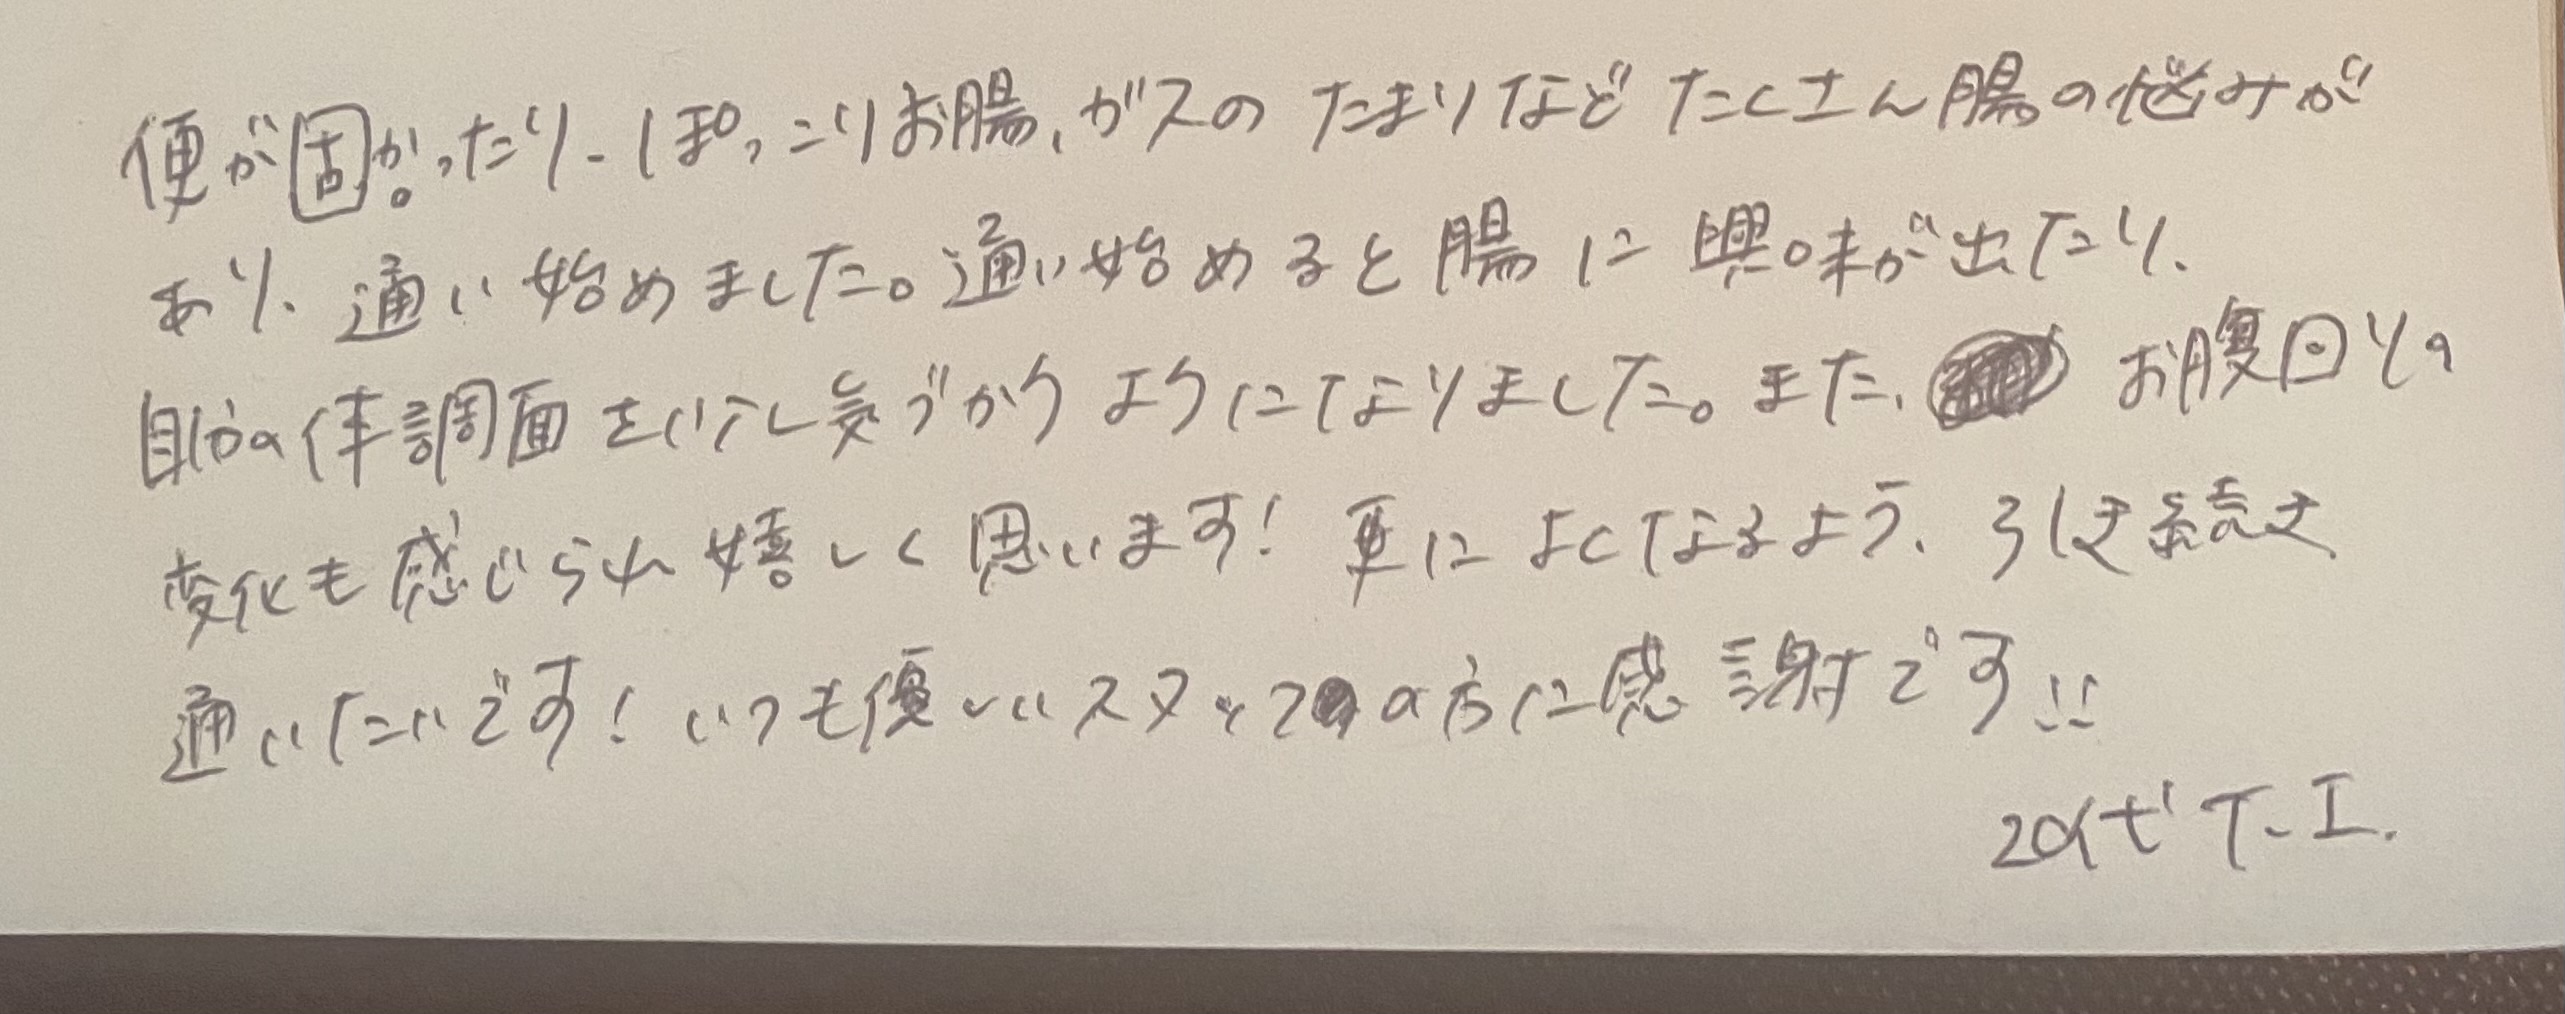 便が固かったり、ぽっこりお腸、ガスのたまりなどたくさん腸の悩みが
あり、通い始めました。通い始めると腸に興味が出たり、
自分の体調面を少し気づかうようになりました。また、お腹回りの
変化も感じられ嬉しく思います！更によくなるよう、引き続き
通いたいです！いつも優しいスタッフの方に感謝です!!
20代 T.I.